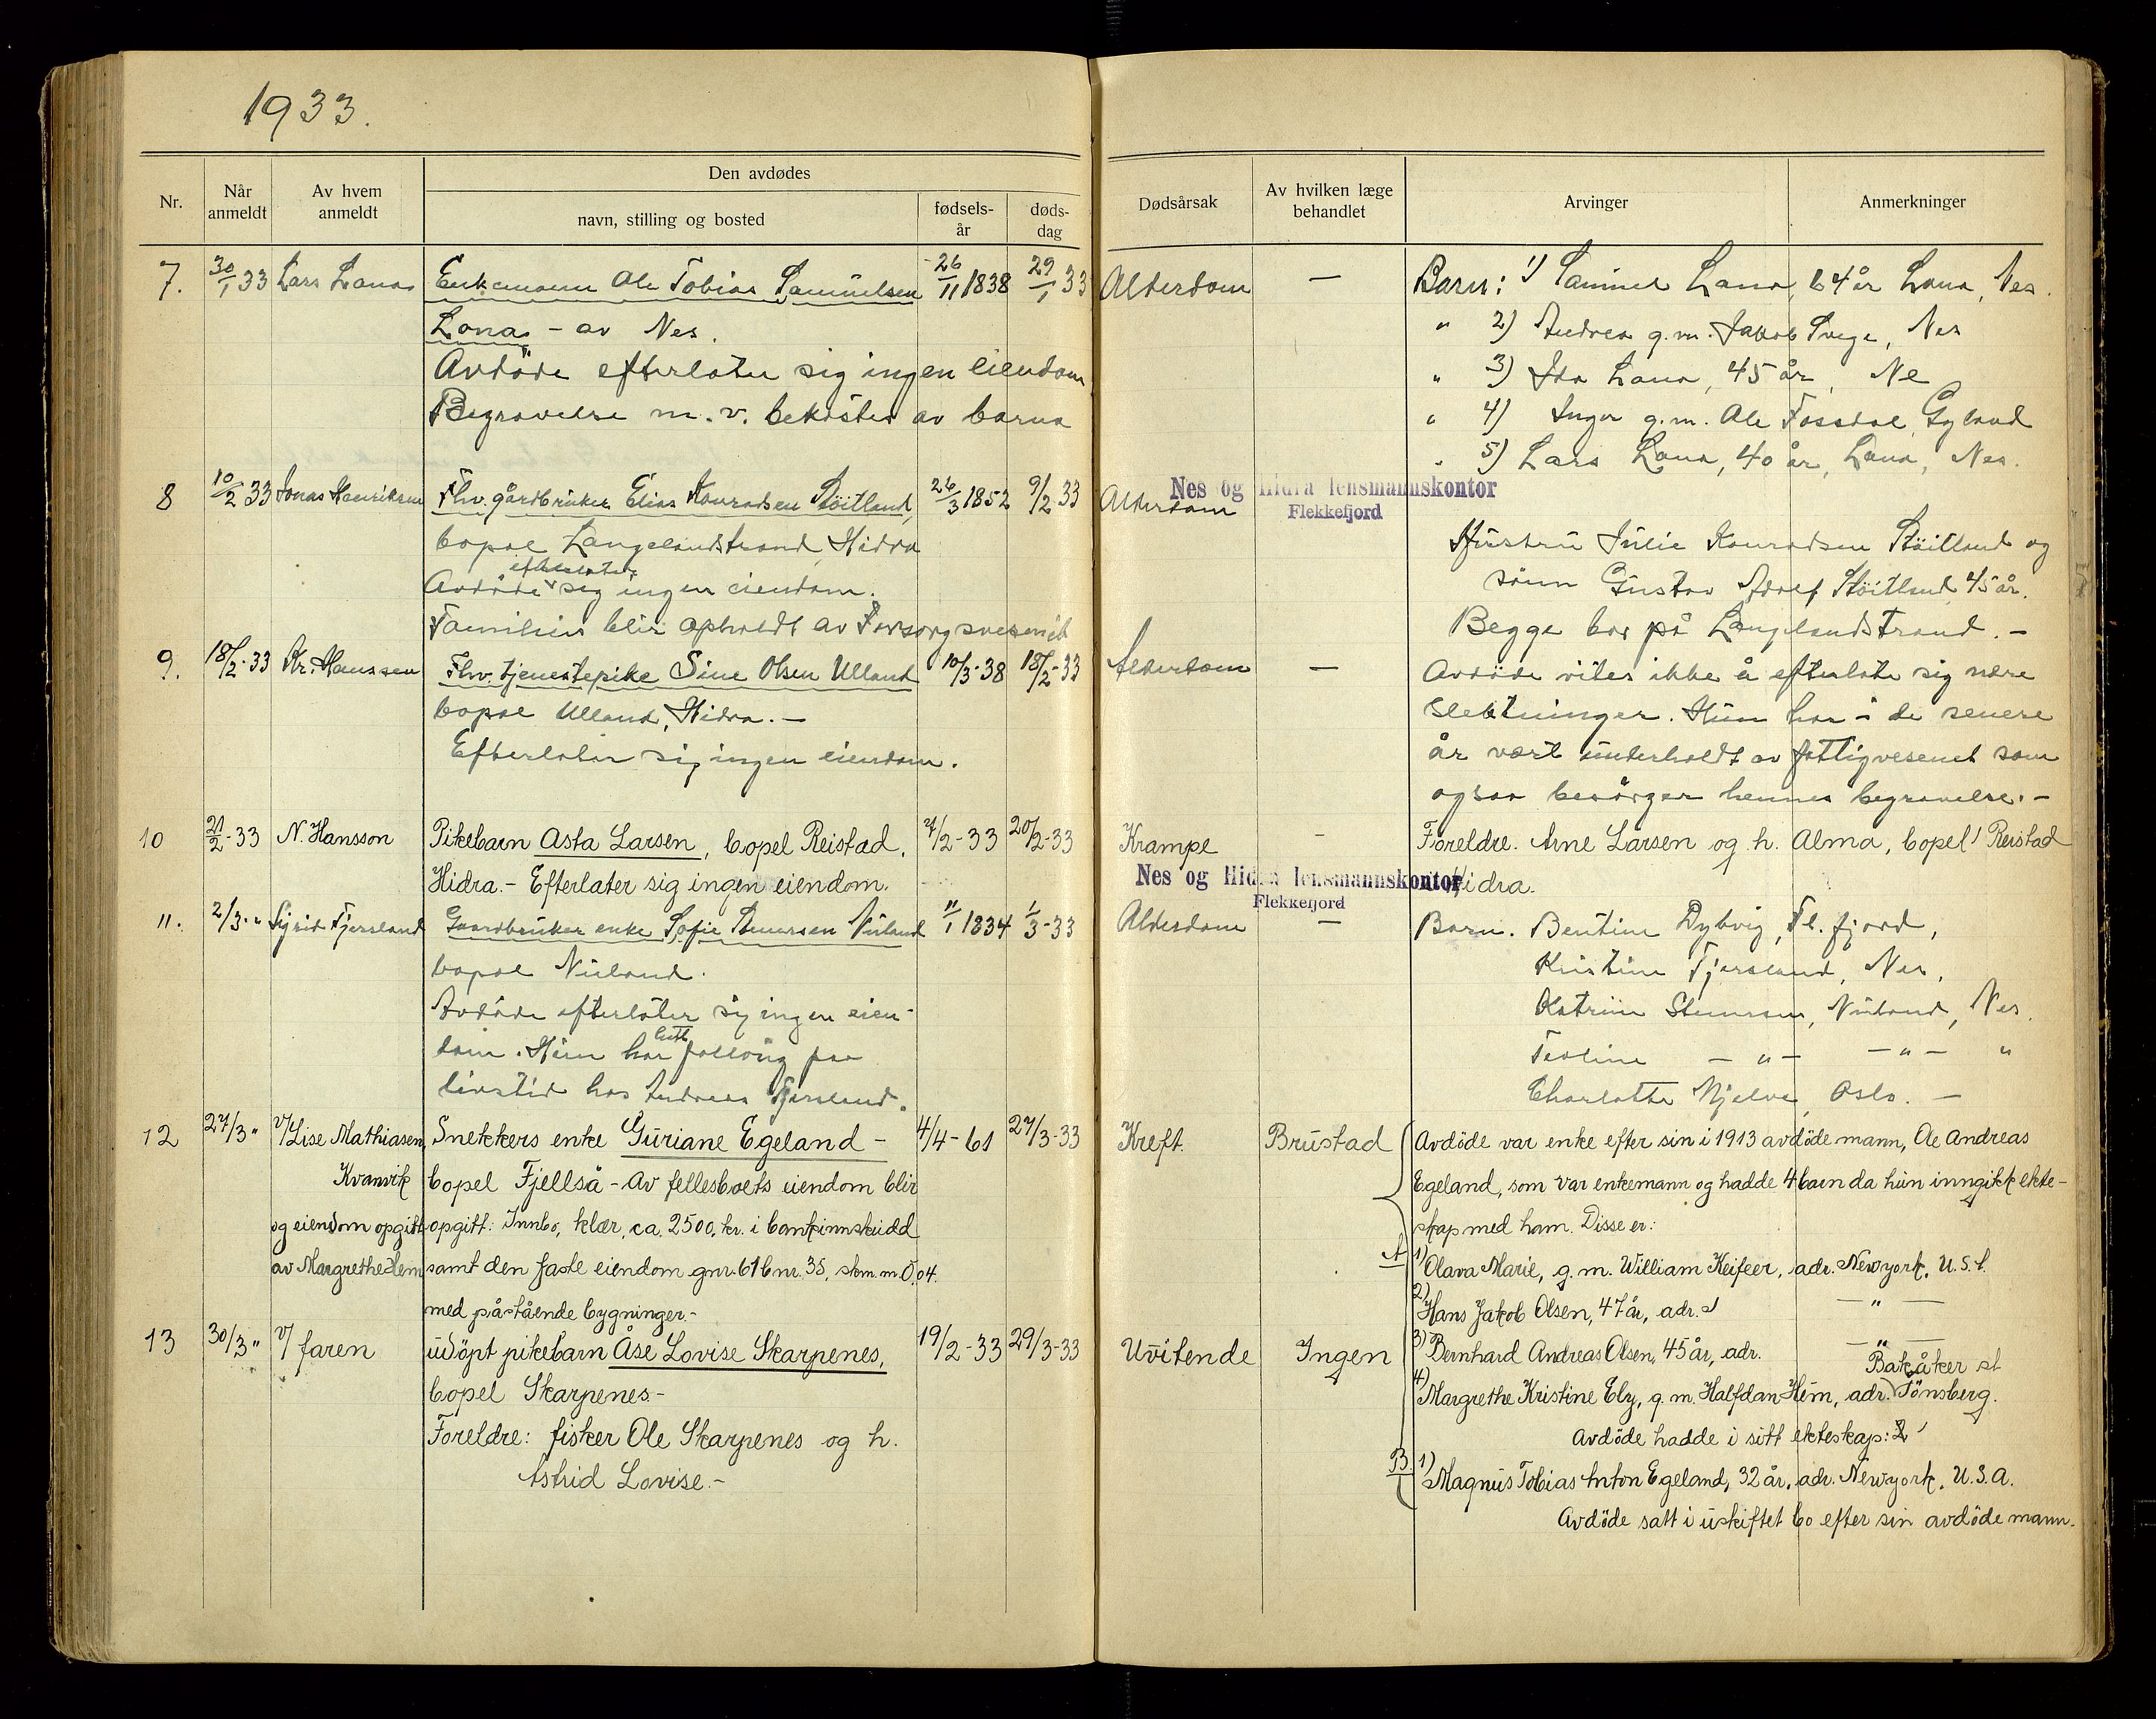 1933.
Nr.
Når anmeldt
Av hvem anmeldt
Den avdødes
navn, stilling og bosted
fødsels-år
døds-dag
Dødsårsak
Av hvilken læge behandlet
Arvinger
Anmerkninger
7. 30/1 33 Lars Lona Enkemann Ole Tobias Samuelsen 26/11 1838 29/1 33 Alderdom — Barn: 1) Samuel Lona, 64 år Lona, Nes.
Lona - av Nes. " 2) Andrea g.m. Jakob Svege, Nes
Avdöde efterlater sig ingen eiendom " 3) Ida Lona, 45 år, Ne
Begravelse m.v. bekostes av barna " 4) Inger g.m. Ole Fossdal, Gyland
" 5) Lars Lona, 40 år, Lona, Nes.
Nes og Hidra lensmannskontor
Flekkefjord
8 10/2 33 Jonas Henriksen Fhv. gårdbruker Elias Konradsen Stöitland, 26/3 1852 9/2 33 Alderdom
bopæl Langelandstrand, Hidra Hustru Julie Konradsen Stöitland og
Avdöde efterlater sig ingen eiendom. sönn Gustav Adolf Stöitland 45 år.
Familien blir opholdt av Forsorgsvesenet Begge bor på Langelandstrand. -
9. 18/2-33 Kr. Hanssen Fhv. tjenestepike Sine Olsen Ulland 10/3-38 18/2-33 Alderdom — Avdöde vites ikke å efterlate sig nære
bopæl Ulland, Hidra. - slektninger. Hun har i de senere
Efterlater sig ingen eiendom. år vært underholdt av fattigvesenet som
ogsaa besörger hennes begravelse. -
10 21/2-33 N. Hansson Pikebarn Asta Larsen, bopel Reistad, 7/2-33 20/2-33 Krampe - Foreldre. Arne Larsen og h. Alma, bopel Reistad
Hidra. - Efterlater sig ingen eiendom. Hidra.
Nes og Hidra lensmannskontor
Flekkefjord
11. 2/3 - " Sigrid Fjersland Gaardbruker enke Sofie Stenersen Nuland 11/1 1834 1/3-33 Alderdom — Barn. Bentine Dybvig, Fl. fjord,
bopæl Nuland. Kristine Fjersland, Nes,
Avdöde efterlater sig ingen eien- Katrine Stenersen, Nuland, Nes.
dom. Hun har hatt follaug paa Teoline - " - - " - "
livstid hos Andreas Fjersland. Charlotte Mjelve, Oslo. -
12 27/3 " v/ Lise Mathiasen, Snekkers enke Guriane Egeland - 4/4-61 27/3-33 Kreft. Brustad Avdöde var enke efter sin i 1913 avdöde mann, Ole Andreas
Kvanvik bopel Fjellså - Av fellesboets eiendom blir Egeland, som var enkemann og hadde 4 barn da hun inngikk ekte-
og eiendom opgitt opgitt: Innbo, klær, ca. 2500, kr. i bankinnskudd skap med ham. Disse er:
av Margrethe Hem samt den faste eiendom gnr. 61 bnr. 35, skm. m. 0.04. A 1) Olava Marie, g.m. William Keifeer, adr. Newyork, U.S.A.
med påstående bygninger - 2) Hans Jakob Olsen, 47 år, adr. — " —
13 30/3 " v/ faren udöpt pikebarn Åse Lovise Skarpenes, 19/2-33 29/3-33 Uvitende Ingen 3) Bernhard Andreas Olsen, 45 år, adr. — " —
bopel Skarpenes - 4) Margrethe Kristine Ely, g.m. Halfdan Hem, adr. Bakåker st Tönsberg.
Foreldre: fisker Ole Skarpenes og h. Avdöde hadde i sitt ekteskap:
Astrid Lovise. - B. 1) Magnus Tobias Anton Egeland, 32 år, adr. Newyork, U.S.A.
Avdöde satt i uskiftet bo efter sin avdöde mann.